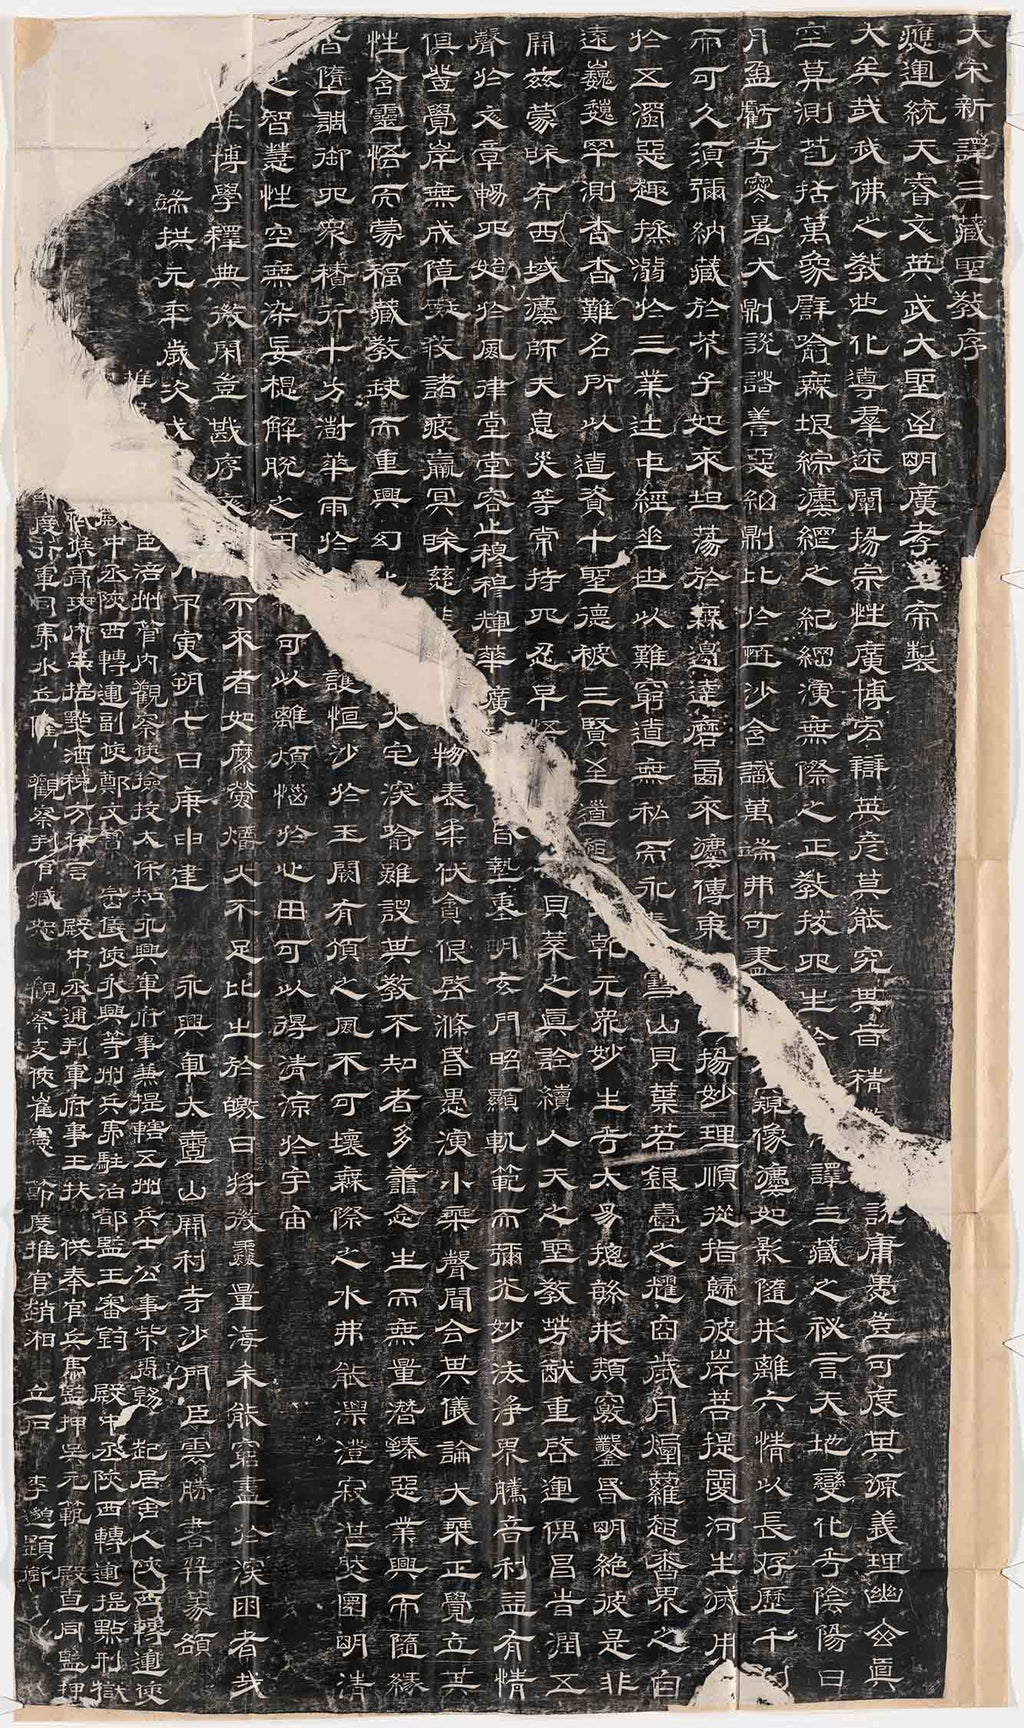 大宋新譯三藏聖教序
應運統天睿文英武大聖至明廣孝皇帝製
大矣哉我佛之教也化導羣迷闡揚宗性廣博宏辯英彥莫能究其旨精 說庸愚豈可度其源義理幽玄真
空莫測苞括萬象譬喻無垠綜法網之紀綱演無際之正教拔四生於 譯三藏之祕言天地變化乎陰陽日
月盈虧乎寒暑大則說諸善惡細則比於恒沙含識萬端弗可盡 窺像法如影隨形離六情以長存歷千
而可久須彌納藏於芥子如來坦蕩於無邊達磨西來法傳東 揚妙理順從指歸彼岸菩提愛河生滅用
於五濁惡趣拯溺於三業途中經垂世以難窮道無私而永 雪山貝葉若銀臺之耀目歲月煙蘿起香界之自
遠巍巍罕測杳杳難名所以道資十聖德被三賢至道 乾元眾妙生乎太易揔繇形類竅鑿昏明絕彼是非
開茲蒙昧有西域法師天息災等常持四忍早 貝葉之真詮續人天之聖教芳猷重啓運偶昌時潤五
聲於文章暢四始於風律堂堂容止穆穆輝華廣 昏墊重明玄門昭顯軌範而彌光妙法淨界騰音利益有情
俱登覺岸無成障礙救諸疲羸冥昧慈 物表柔伏貪佷啓滌昏愚演小乘聲聞合其儀論大乘正覺立其
性含靈悟而蒙福藏教缺而重興幻 火宅深喻雖設其教不知者多善念生而無量潛臻惡業興而隨緣
皆墮調御四眾積行十方澍華雨於 護恒沙於玉闕有頂之風不可壞無際之水弗能漂澄寂湛然圓明清
之智慧性空無染妄想解脫之因 可以離煩惱於心田可以得清涼於宇宙
非博學釋典微閑豈堪序 示來者如縻熒爝火不足比出於皦日將微蠡量海未能窮盡於深困者哉
端拱元年歲次戊 不寅朔七日庚申建 永興軍大薦山開利寺沙門臣雲勝書并篆額
推 臣 濟州管內觀察使撿挍太保知永興軍府事兼提轄五州兵士公事柴禹錫 起居舍人陝西轉運使
獻中丞陝西轉運副使鄭文寶 崇儀使永興等州兵馬駐泊都監王審鈞 殿中丞陝西轉運提點刑獄
殿中丞通判軍府事王扶 供奉官兵馬監押吳元範 殿直同監押
節度行軍司馬水丘隆 觀察判官臧奎 觀察支使崔憲 節度推官趙湘 立石 李邈題銜